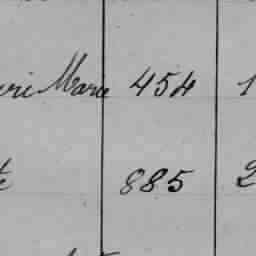 Marie 454 1
885 2